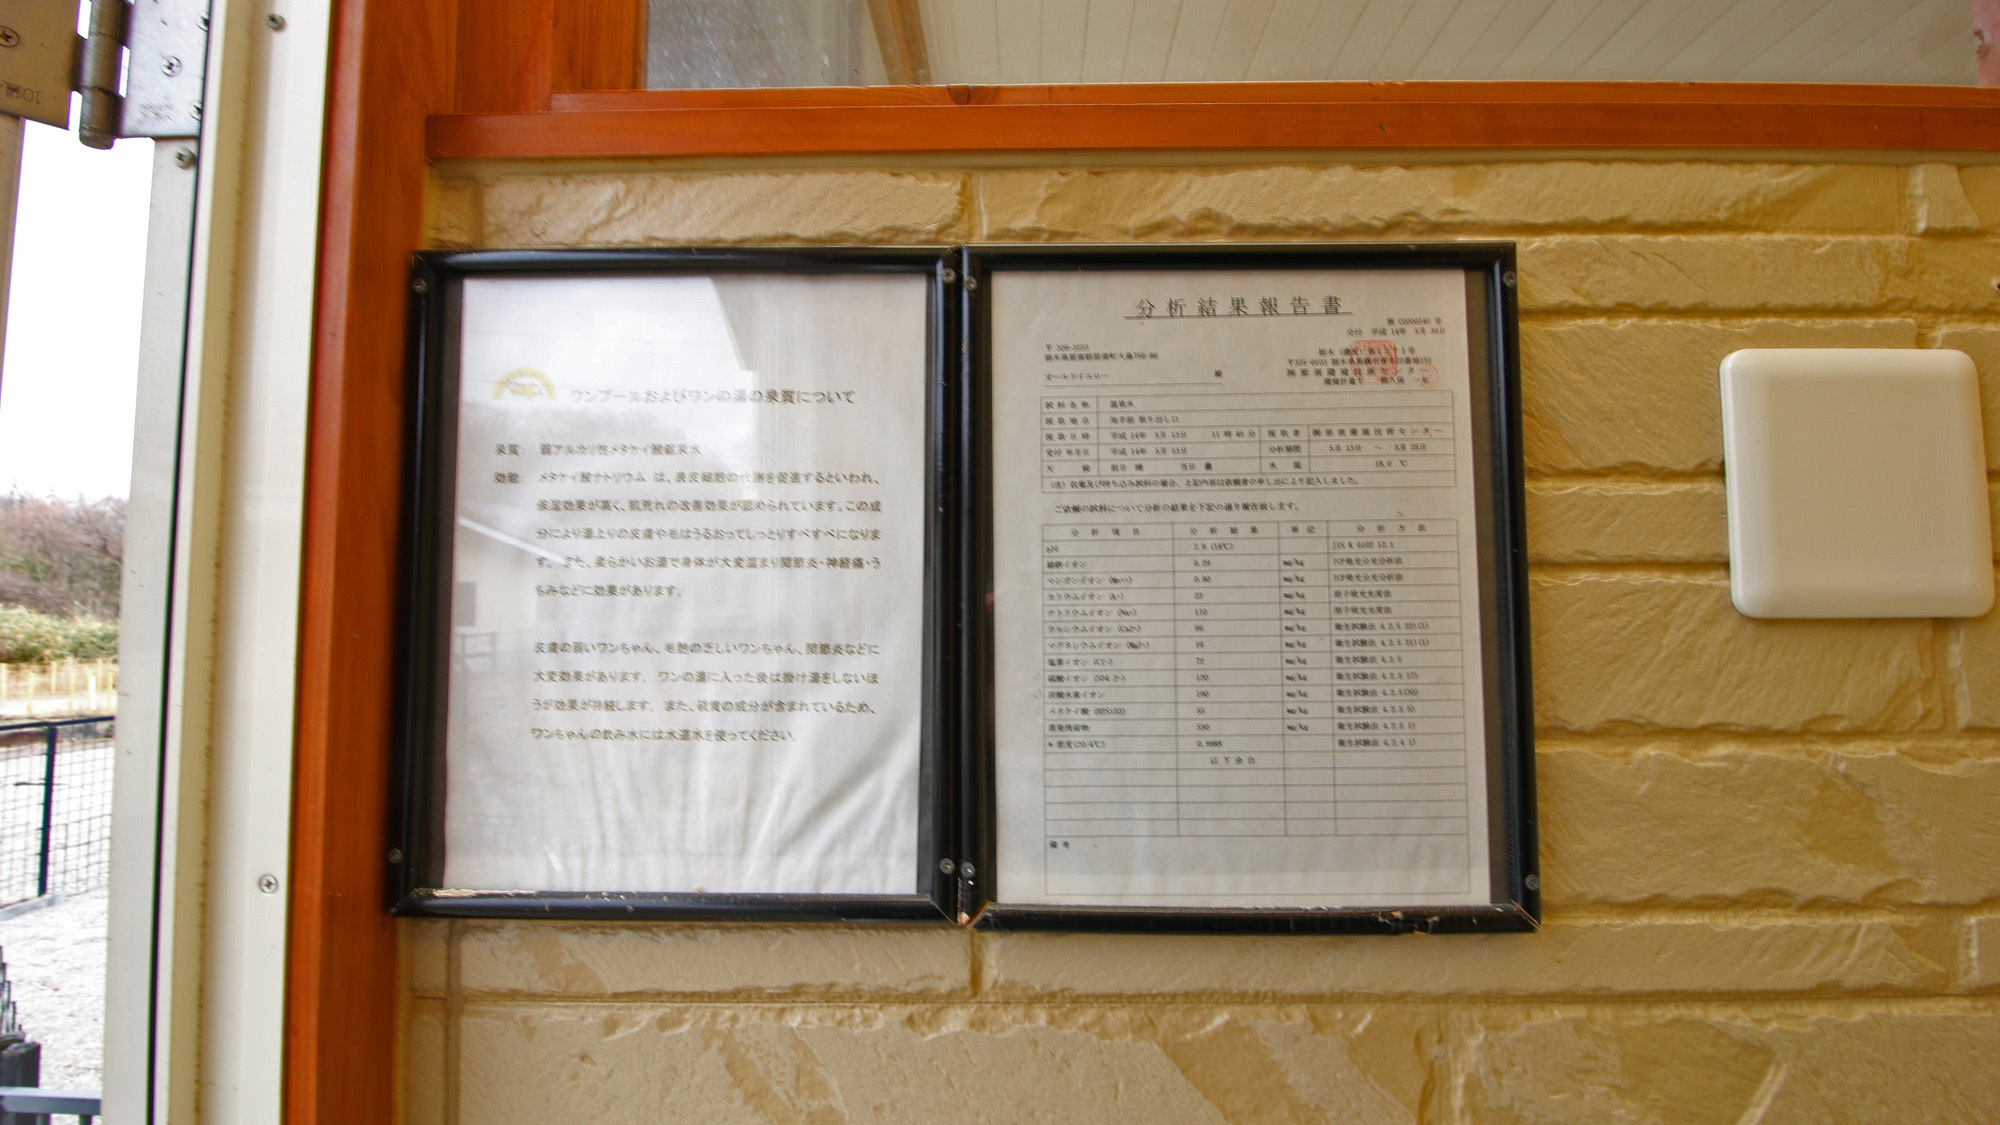 ワンプールおよびワンの湯の泉質について
泉質: 弱アルカリ性メタケイ酸鉱泉水
効能: メタケイ酸ナトリウム は、表皮細胞の代謝を促進するといわれ、
保湿効果が高く、肌荒れの改善効果が認められています。この成
分により湯上りの皮膚や毛はうるおってしっとりすべすべになりま
す。また、柔らかいお湯で身体が大変温まり関節炎・神経痛・う
ちみなどに効果があります。
皮膚の弱いワンちゃん、毛艶の乏しいワンちゃん、関節炎などに
大変効果があります。ワンの湯に入った後は掛け湯をしないほ
うが効果が持続します。また、硫黄の成分が含まれているため、
ワンちゃんの飲み水には水道水を使ってください。
分析結果報告書
交付 平成 14年 5月 30日
オールドイエロー 殿
試料名称 温泉水
採取地点
採取日時 平成 14年 5月 13日 11時 採取者
受付年月日 平成 14年 5月 13日 分析期間 5月 13日 ～ 5月
天候 前日 晴 当日 曇 水温 18.0 ℃
(注) 依頼及び持ち込み試料の場合、上記内容は依頼者の申し出により記入しました。
ご依頼の試料について分析の結果を下記の通り報告致します。
分析項目 分析結果 単位 分析方法
pH 7.9 (18℃) JIS K 0102 12.1
mg/kg ICP発光分光分析法
マンガンイオン mg/kg ICP発光分光分析法
カリウムイオン (K+) mg/kg 原子吸光光度法
ナトリウムイオン (Na+) 110 mg/kg 原子吸光光度法
カルシウムイオン (Ca2+) mg/kg 衛生試験法
マグネシウムイオン (Mg2+) 16 mg/kg 衛生試験法
塩素イオン (Cl-) 72 mg/kg 衛生試験法 4.2.5
硫酸イオン (SO4 2-) 120 mg/kg 衛生試験法
炭酸水素イオン 190 mg/kg 衛生試験法
メタケイ酸 (H2SiO3) mg/kg 衛生試験法
蒸発残留物 mg/kg 衛生試験法
* 密度(20/4℃) 0.9988 衛生試験法
以下余白
備考